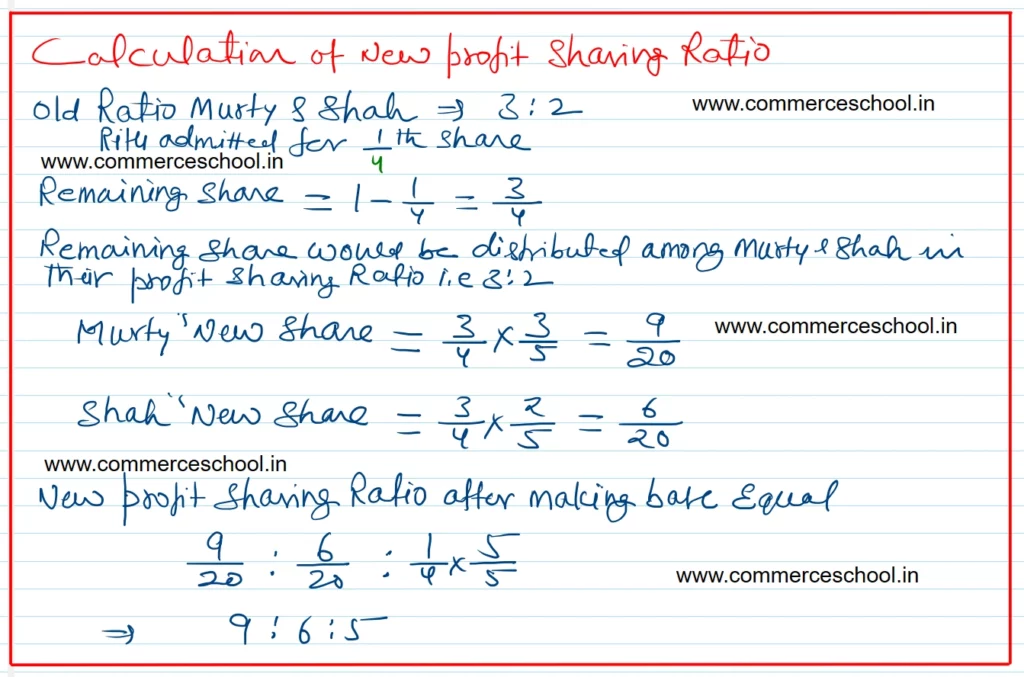 Calculation of New profit Sharing Ratio
Old Ratio Murty & Shah ⇒ 3:2
www.commerceschool.in
Ritu admitted for 1/4 th Share
www.commerceschool.in
Remaining Share = 1 - 1/4 = 3/4
Remaining Share would be distributed among Murty & Shah in
their profit sharing Ratio i.e 3:2
Murty's New Share = 3/4 × 3/5 = 9/20
www.commerceschool.in
Shah's New Share = 3/4 × 2/5 = 6/20
www.commerceschool.in
New profit Sharing Ratio after making base Equal
9/20 : 6/20 : 1/4 × 5/5
www.commerceschool.in
⇒ 9 : 6 : 5